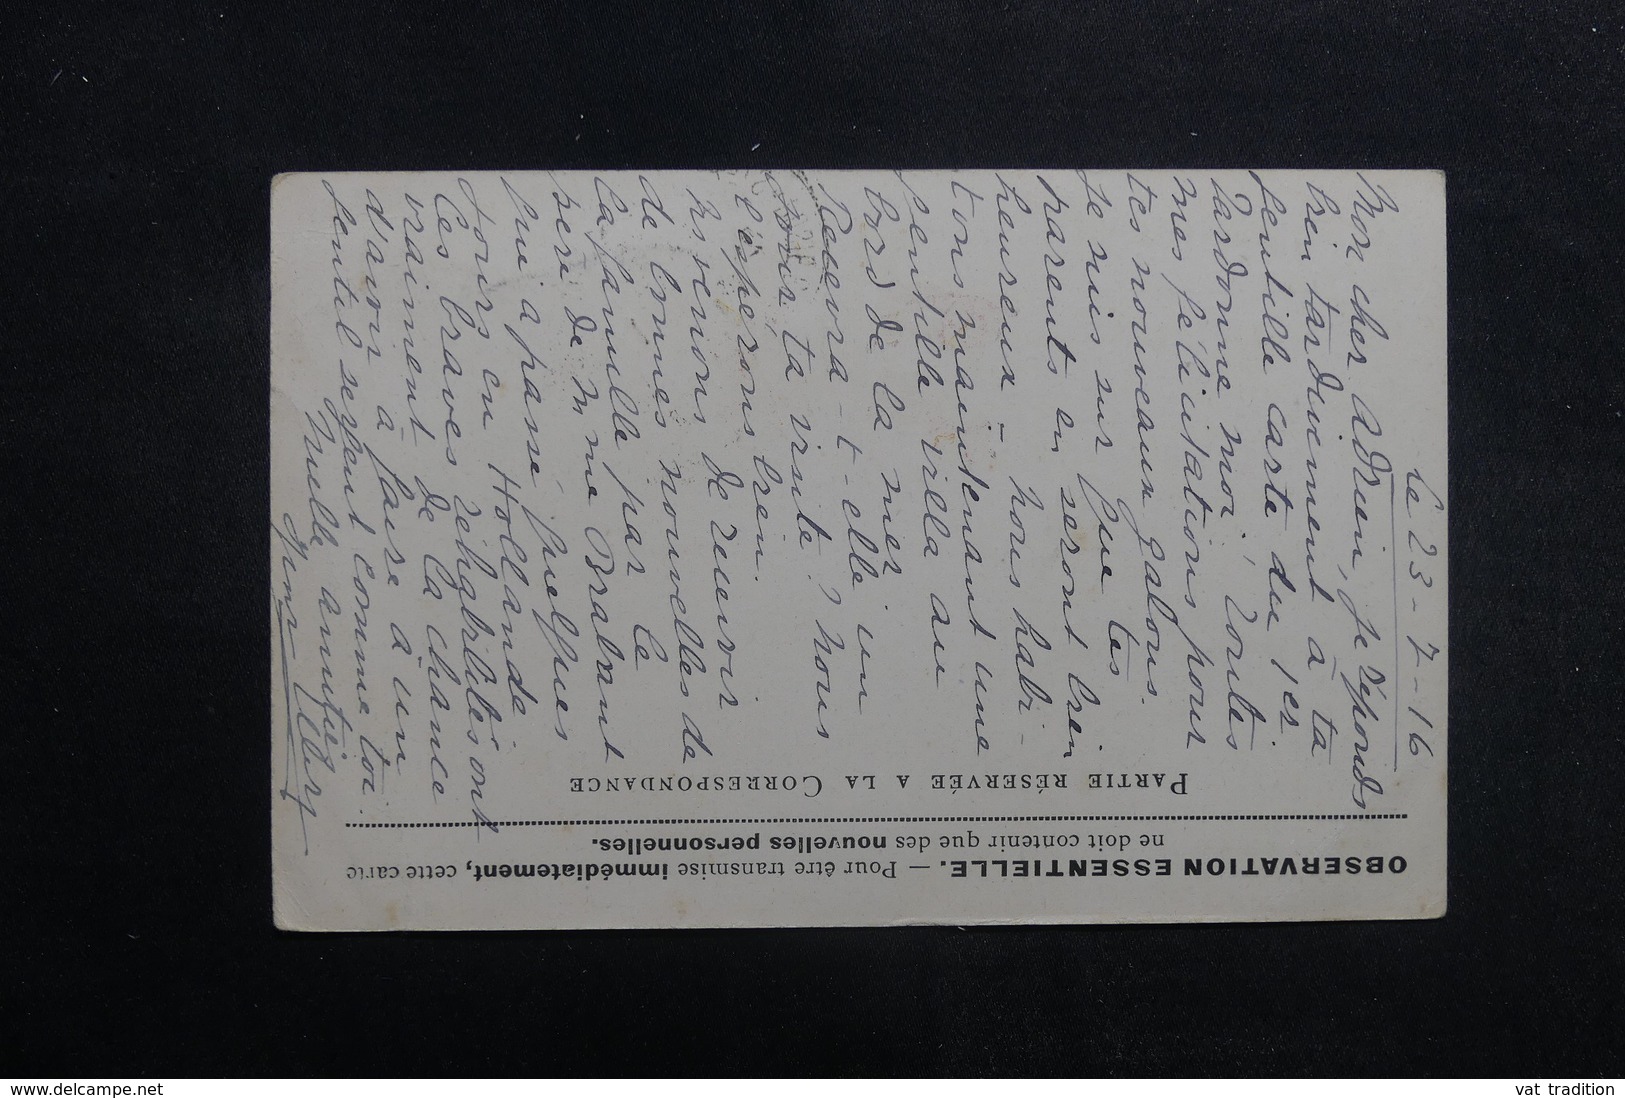 le 23-7-16
Mon cher Adrien, je réponds
bien tardivement à ta
gentille carte du 1er.
Pardonne moi, toutes
mes félicitations pour
tes nouveaux galons.
Je suis sur que tes
parents en seront bien
heureux - nous habi-
tons maintenant une
gentille villa au
bord de la mer
Recevra-t-elle un
jour ta visite? nous
l'espérons bien.
Ns venons de recevoir
de bonnes nouvelles de
la famille par le
père de Mme Brabant
qui a passé quelques
jours en Hollande
Ces braves réhabilités ont
vraiment de la chance
d'avoir à faire à un
gentil sergent comme toi.
Mille amitiés
PARTIE RÉSERVÉE A LA CORRESPONDANCE
OBSERVATION ESSENTIELLE. — Pour être transmise immédiatement, cette carte
ne doit contenir que des nouvelles personnelles.
www.delcampe.net
vat_tradition